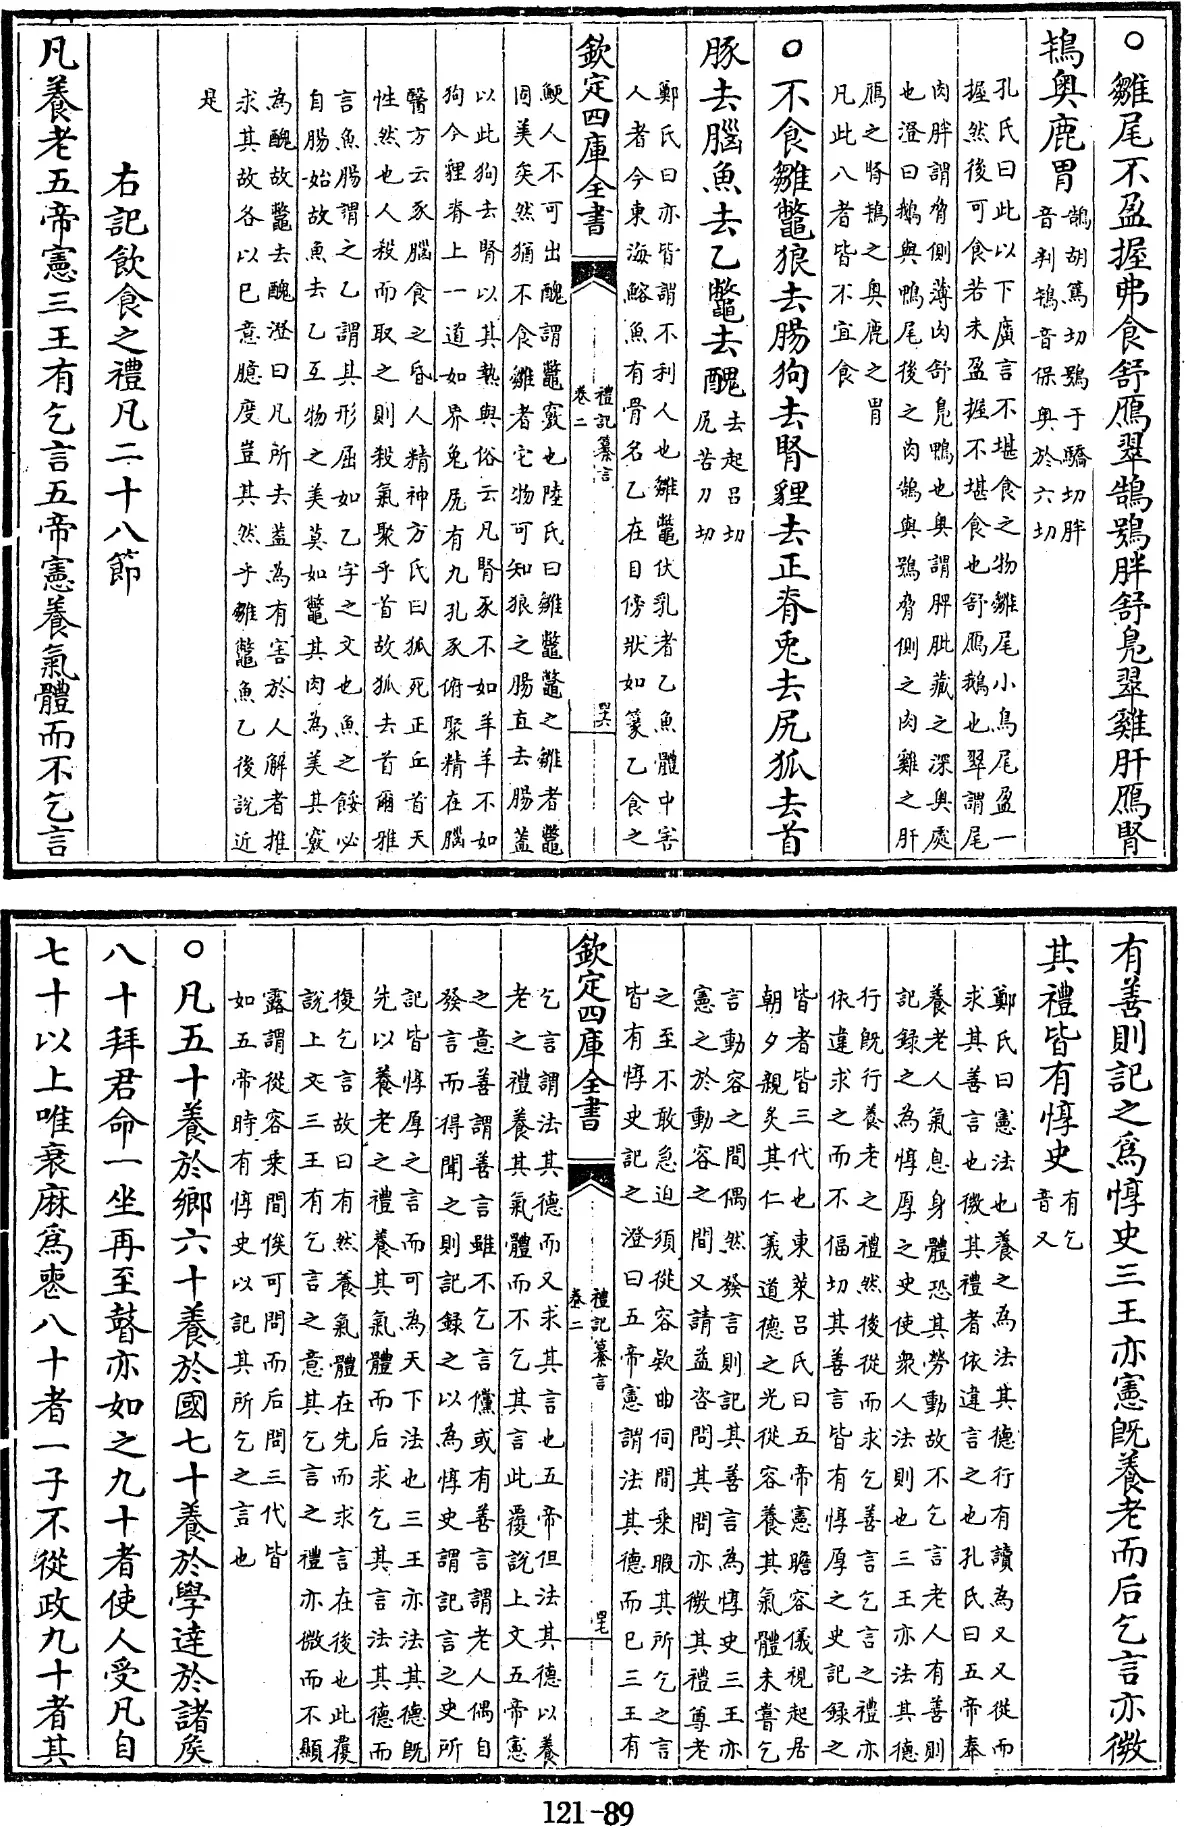 ○雛尾不盈握弗食舒鴈翠鵠鴞胖舒鳬翠雞肝鴈腎
鴇奥鹿胃
鵠胡篤切鴞于驕切胖
音判鴇音保奥於六切
孔氏曰此以下廣言不堪食之物雛尾小鳥尾盈一
握然後可食若未盈握不堪食也舒鴈鵝也翠謂尾
肉胖謂脅側薄肉舒鳬鴨也奥謂脾肶藏之深奥處
也澄曰鵝與鴨尾後之肉鵠與鴞脅側之肉雞之肝
鴈之腎鴇之奥鹿之胃
凡此八者皆不宜食
○不食雛鼈狼去腸狗去腎貍去正脊兎去尻狐去首
豚去腦魚去乙鼈去醜
去起呂切
尻苦刀切
鄭氏曰亦皆謂不利人也雛鼈伏乳者乙魚體中害
人者今東海鰫魚有骨名乙在目傍狀如篆乙食之
欽定四庫全書
禮記纂言
卷二
四六
鯁人不可出醜謂鼈竅也陸氏曰雛鼈鼈之雛者鼈
固美矣然猶不食雛者它物可知狼之腸直去腸蓋
以此狗去腎以其熱與俗云凡腎豕不如羊羊不如
狗今貍脊上一道如界兎尻有九孔豕俯聚精在腦
醫方云豕腦食之昏人精神方氏曰狐死正丘首天
性然也人殺而取之則殺氣聚乎首故狐去首爾雅
言魚腸謂之乙謂其形屈如乙字之文也魚之餒必
自腸始故魚去乙互物之美莫如鼈其肉為美其竅
為醜故鼈去醜澄曰凡所去蓋為有害於人解者推
求其故各以已意臆度豈其然乎雛鼈魚乙後說近
是
右記飲食之禮凡二十八節
凡養老五帝憲三王有乞言五帝憲養氣體而不乞言
有善則記之爲惇史三王亦憲既養老而后乞言亦微
其禮皆有惇史
有乞
音又
鄭氏曰憲法也養之為法其德行有讀為又又從而
求其善言也微其禮者依違言之也孔氏曰五帝奉
養老人氣息身體恐其勞動故不乞言老人有善則
記録之為惇厚之史使衆人法則也三王亦法其德
行既行養老之禮然後從而求乞善言乞言之禮亦
依違求之而不偪切其善言皆有惇厚之史記録之
皆者皆三代也東萊吕氏曰五帝憲瞻容儀視起居
朝夕親炙其仁義道德之光從容養其氣體未嘗乞
言動容之間偶然發言則記其善言為惇史三王亦
憲之於動容之間又請益咨問其問亦微其禮尊老
之至不敢急迫須從容欵曲伺間乗暇其所乞之言
皆有惇史記之澄曰五帝憲謂法其德而已三王有
欽定四庫全書
禮記纂言
卷二
四七
乞言謂法其德而又求其言也五帝但法其德以養
老之禮養其氣體而不乞其言此覆説上文五帝憲
之意善謂善言雖不乞言儻或有善言謂老人偶自
發言而得聞之則記録之以為惇史謂記言之史所
記皆惇厚之言而可為天下法也三王亦法其德既
先以養老之禮養其氣體而后求乞其言法其德而
後乞言故曰有然養氣體在先而求言在後也此覆
說上文三王有乞言之意其乞言之禮亦微而不顯
露謂從容乗間俟可問而后問三代皆
如五帝時有惇史以記其所乞之言也
○凡五十養於鄉六十養於國七十養於學達於諸侯
八十拜君命一坐再至瞽亦如之九十者使人受凡自
七十以上唯衰麻爲喪八十者一子不從政九十者其
121-89